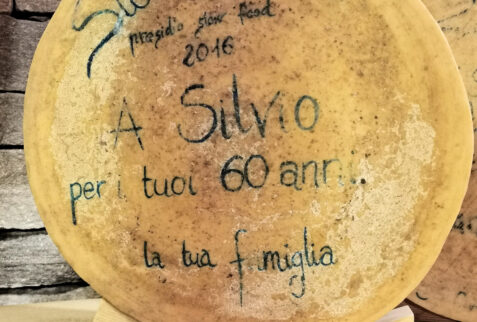 presidio slow food
2016
A Silvio
per i tuoi 60 anni
la tua famiglia